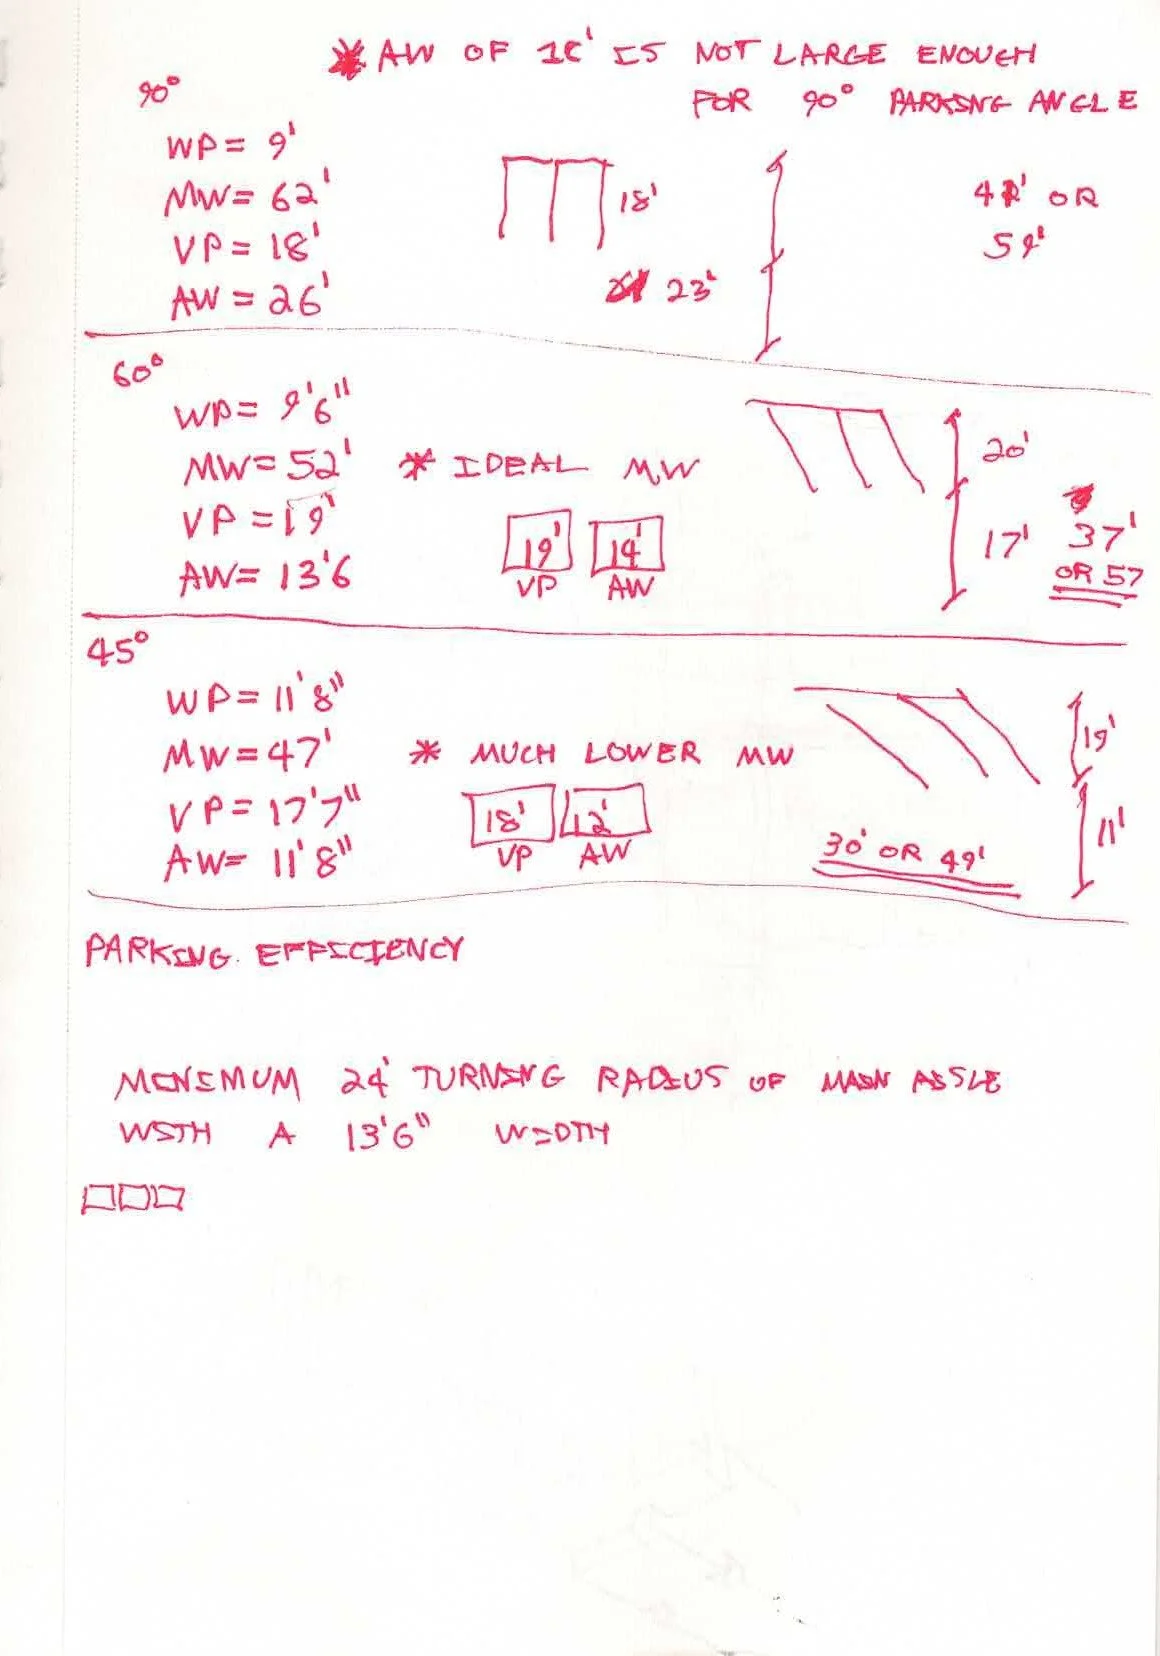 * AW OF 18' IS NOT LARGE ENOUGH
FOR 90° PARKING ANGLE
90°
WP = 9'
MW = 62'
VP = 18'
AW = 26'
18'
23'
41' OR
59'
60°
WP = 9'6"
MW = 52' * IDEAL MW
VP = 19'
AW = 13'6
19' 14'
VP AW
20'
17'
37'
OR 57
45°
WP = 11'8"
MW = 47' * MUCH LOWER MW
VP = 17'7"
AW = 11'8"
18' 12'
VP AW
19'
11'
30' OR 49'
PARKING EFFICIENCY
MINIMUM 24' TURNING RADIUS OF MAIN AISLE
WITH A 13'6" WIDTH